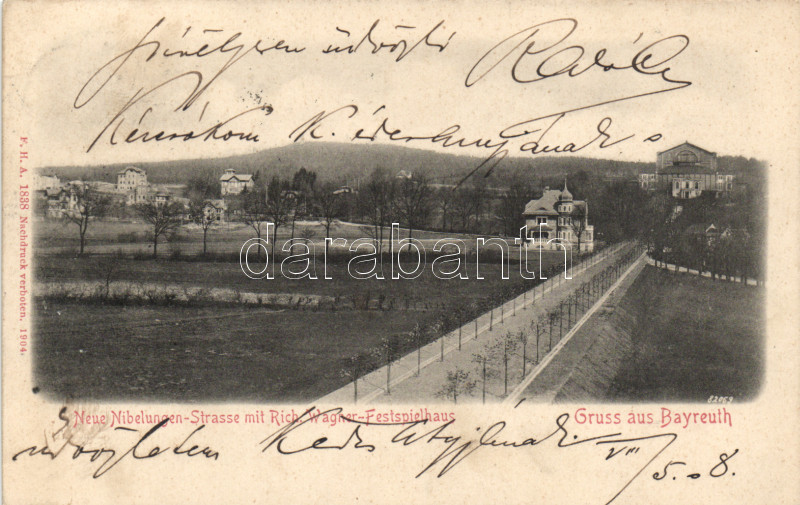 Szívélyesen üdvözli Rabló
K édesanyjának
F. H. A. 1838 Nachdruck verboten. 1904.
darabanth
82069
Neue Nibelungen-Strasse mit Rich. Wagner-Festspielhaus
Gruss aus Bayreuth
üdvözletem Kedves Atyjának
VIII 5.08.